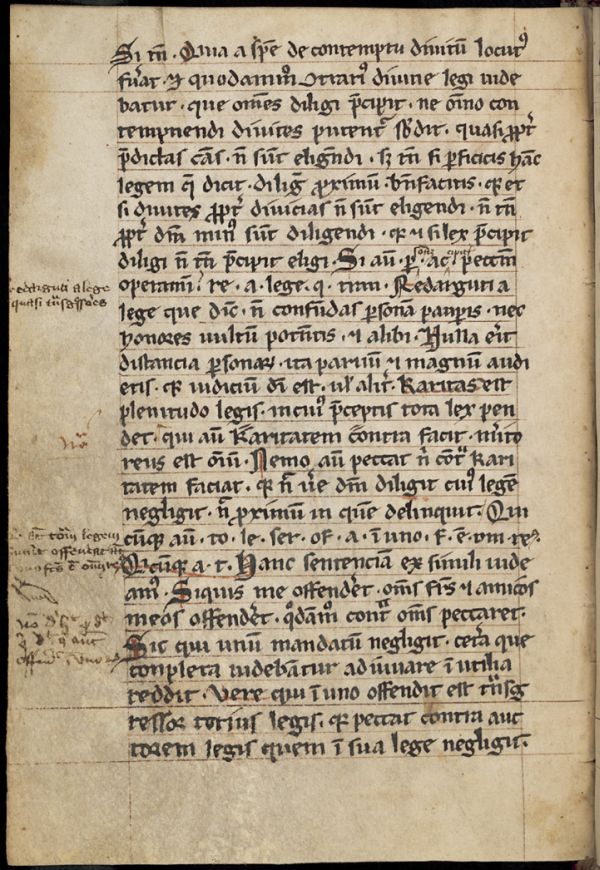 Si tn̄ · Quia a spe de contemptu diuitū locut⁹
fu̓at · ⁊ quodāmō 9trari⁹ diuine legi uide
batur · que om̄es diligi p̄cipit · ne oīno con
tempnendi diuites putent̓ s̄bdit · quasi ꝓpt̓
p̄dictas cās · n̄ sūt eligēndi · sꝫ tn̄ si perficitis hāc
legem q̄ dicit · dilig̓ ꝓximū · bn̄facitis · qꝛ et
si diuites ꝓpt̓ diuicias n̄ sūt eligendi · n̄ tn̄
ꝓpt̓ dm̄ min⁹ sūt diligendi · qꝛ ⁊ si lex p̄cipit
diligi n̄ tn̄ p̄cipit eligi · Si aū · p̱ · ac · peccm̄
operamī · re · a · lege · q · tnm · Redarguti a
lege que dic̄ · n̄ confūdas ꝑsonā pauꝑis · nec
honores uultū potn̄tis · ⁊ alibi · Nulla er̓it
distancia ꝑsonaꝝ · ita paruū ⁊ magnū audi
etis · qꝛ iudiciū dī est · ul̓ alit̓ · Karitas est
plenitudo legis · in cui⁹ p̄ceptis tota lex pen
det · qui aū karitatem contra facit · m̓ito
reus est oīū · Nemo aū peccat n̄ cōt̓ kari
tatem faciat · qꝛ n̄ u̓e dm̄ diligit cui⁹ legē
negligit · n̄ ꝓximū in quē delinquit · Qui
cūqꝫ aū · to · le · ser · of · a · ī uno · f · e · om · re⁹
Qcūqꝫ a · t · Hanc sentenciam ex simili uide
am⁹ · Siquis me offend̓et · om̄s fr̄s ⁊ amicos
meos offend̓et · q̊dām̊ cont̓ om̄s peccaret ·
Sic qui unū mandatū negligit · cet̓a que
conpleta uidebātur adiuuare ī utilia
reddit · Vere qui ī uno offendit est tn̄sg
ressor totius legis · qꝛ peccat contra auc
torem legis quem ī sua lege negligit ·
redarguti a lege
quasi tn̄sg̓ssores